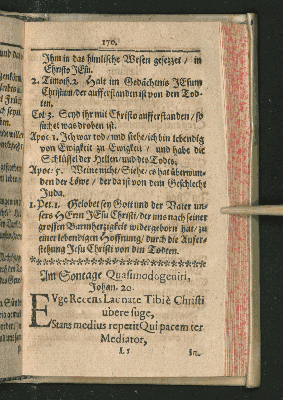 170.
Ihm in das himlische Wesen gesezzet / in
Christo JEsu.
2. Timoth. 2. Halt im Gedächtnis JEsum
Christum / der aufferstanden ist von den Tod-
ten.
Col. 3. Seyd ihr mit Christo aufferstanden / so
suchet was droben ist.
Apoc. 1. Ich war tod / und siehe / ich bin lebendig
von Ewigkeit zu Ewigkeit / und habe die
Schlüssel der Hellen / und des Todes.
Apoc. 5. Weine nicht / Siehe / es hat überwun-
den der Löwe / der da ist von dem Geschlecht
Juda.
1. Pet. 1. Gelobet sey Gott und der Vater un-
sers HErrn JEsu Christi / der uns nach seiner
grossen Barmhertzigkeit widergeborn hat / zu
einer lebendigen Hoffnung / durch die Aufer-
stehung Jesu Christi von den Todten.
Am Sontage Quasimodogeniti,
Johan. 20.
EVge Recens Lau nate Tibi è Christi
ubere suge,
Stans medius reperit Qui pacem ter
Mediator,
L 5